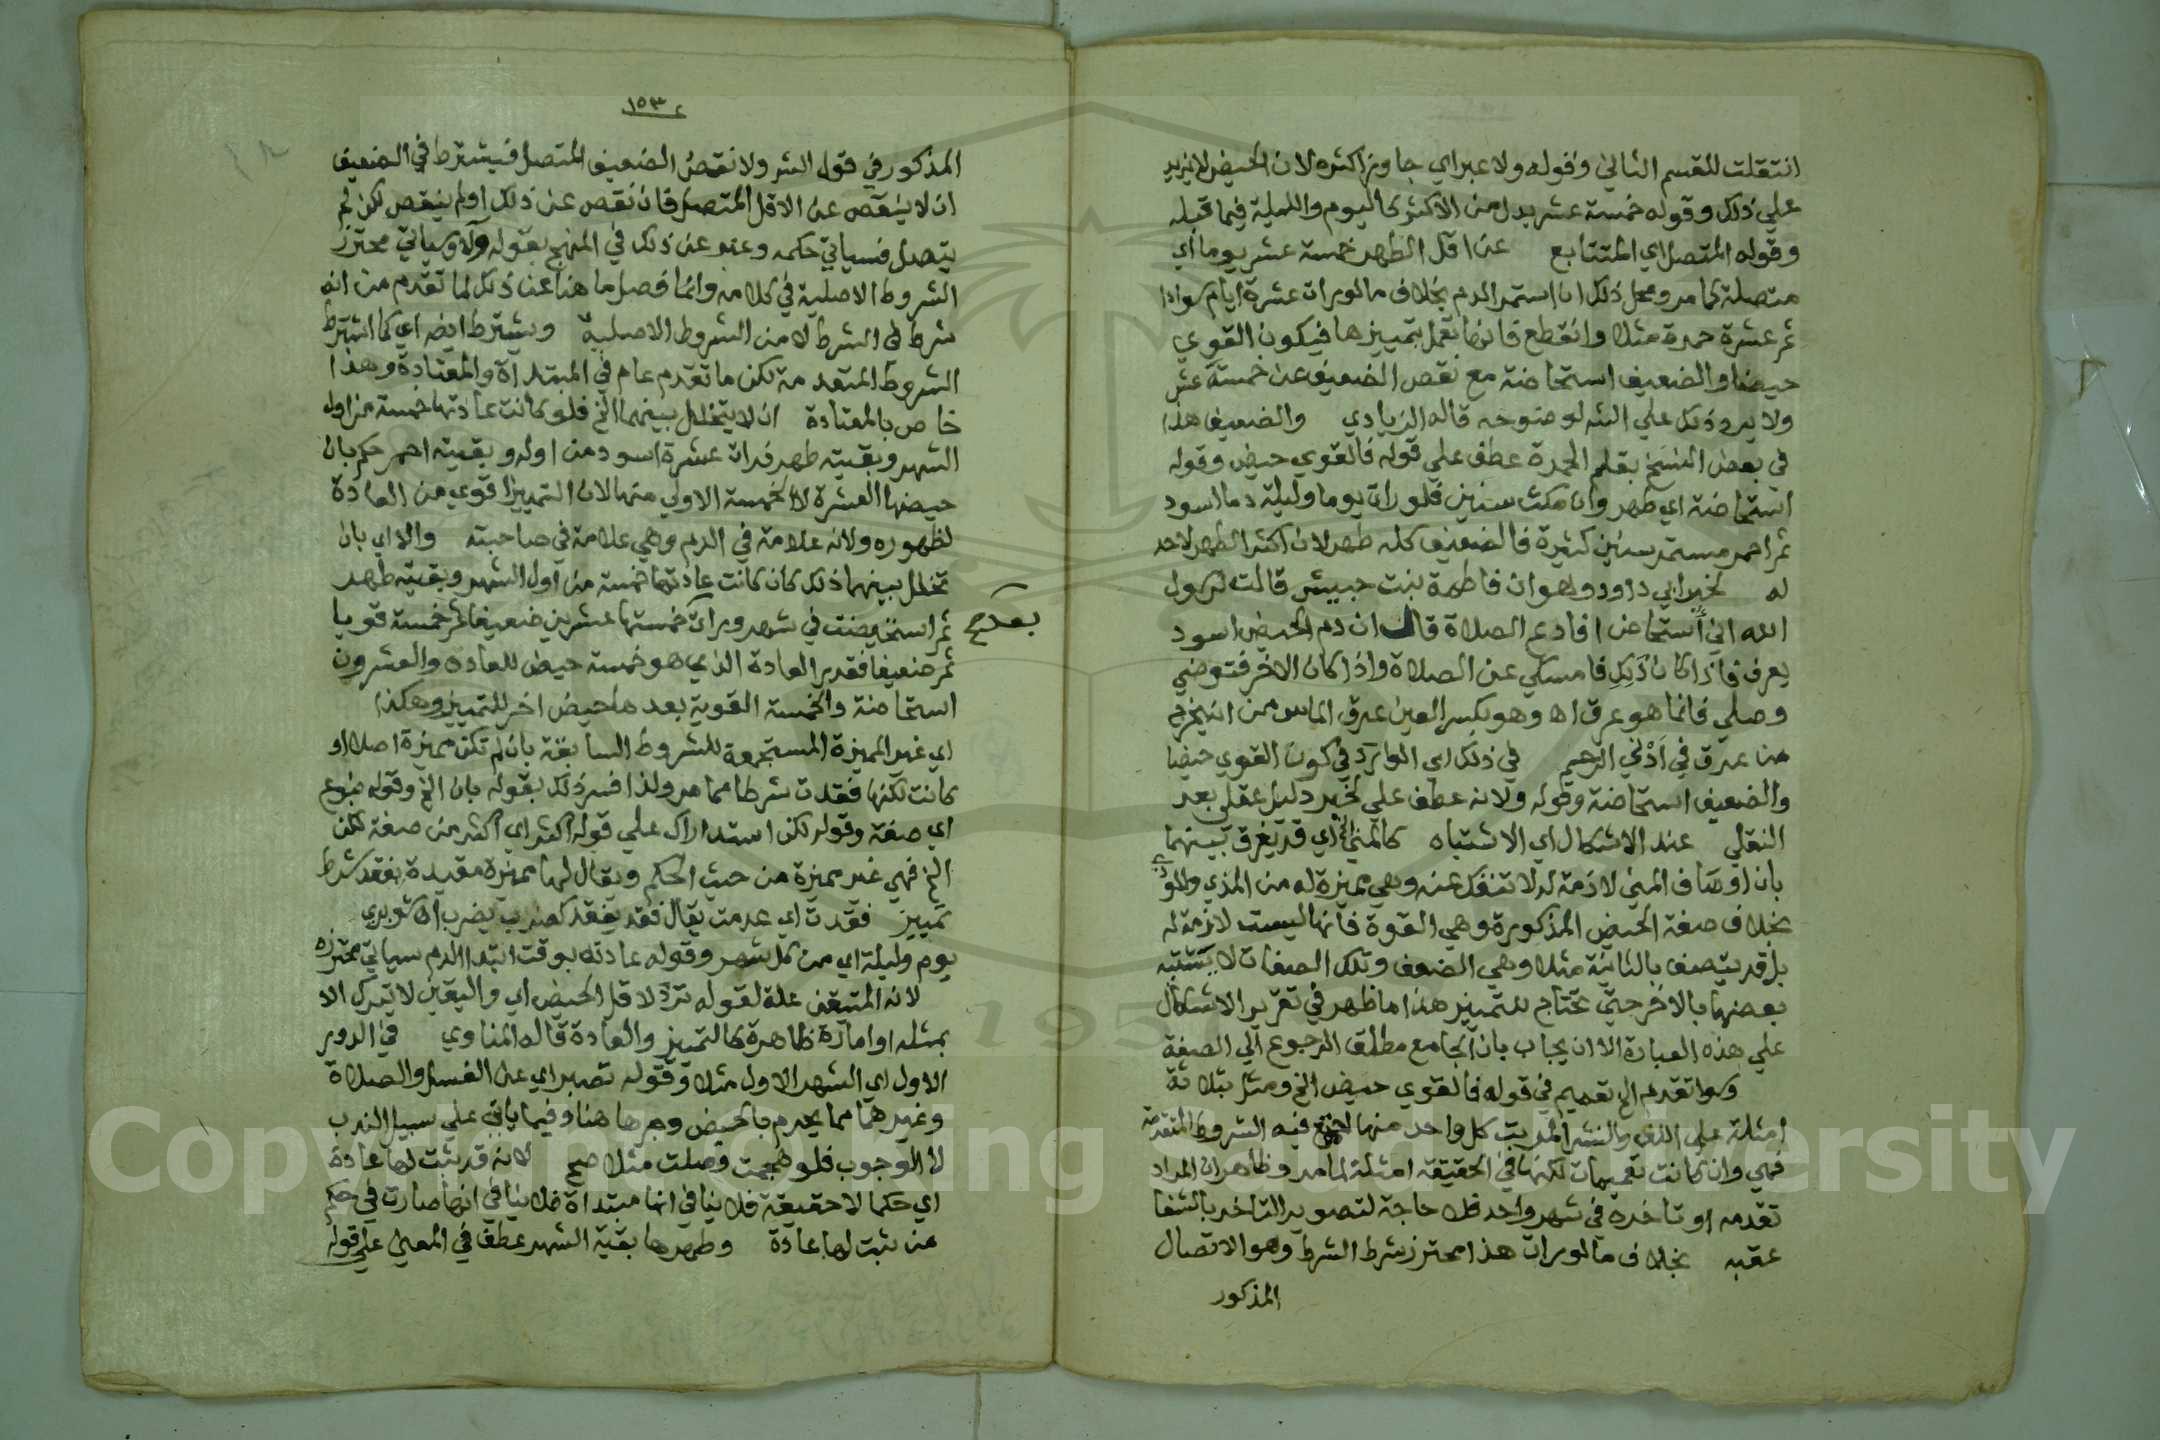 انتقلت للقسم الثاني وقوله ولا عبر اي جاوز اكثره لان الحيض لا يزيد
علي ذلك وقوله خمسة عشر بدل من الاكثر كاليوم والليلة فيما قبله
وقوله المتصل اي المتتابع عن اقل الطهر خمسة عشر يوما اي
متصلة كما مر ومحل ذلك ان استمر الدم بخلاف ما لو رات عشرة ايام سوادا
ثم عشرة حمرة مثلا وانقطع فانها تعمل بتمييزها فيكون القوي
حيضا والضعيف استحاضة مع نقص الضعيف عن خمسة عشر
ولا يرد ذلك علي الش لوضوحه قاله الزيادي والضعيف هذا
في بعض النسخ بقلم الحمرة عطف علي قوله فالقوي حيض وقوله
استحاضة اي طهر وان مكث سنين فلو رات يوما وليلة دما اسود
ثم احمر مستمر سنين كثيرة فالضعيف كله طهر لان اكثر الطهر لا حد
له لخبر ابي داود وهو ان فاطمة بنت حبيش قالت لرسول
الله اني أستحاض افادع الصلاة قال ان دم الحيض اسود
يعرف فاذا كان ذلك فامسكي عن الصلاة واذا كان الاخر فتوضي
وصلي فانما هو عرق اه وهو بكسر العين عرق
من عرق في أدني الرحم في ذلك اي الوارد في كون القوي حيضا
والضعيف استحاضة وقوله ولانه عطف علي لخبر دليل عقلي بعد
النقلي عند الاشكال اي الاشتباه كالمني الخ اي قد يفرق بينهما
بان اوصاف المني لازمة له لا تنفك عنه وهي مميزة له من المذي والودي
بخلاف صفة الحيض المذكورة وهي القوة فانها ليست لازمة له
بل قد يتصف بالثانية مثلا وهي الضعف وتلك الصفات لا يشتبه
بعضها بالاخر حتي تحتاج للتمييز هذا ما ظهر في تقرير الاشكال
علي هذه العبارة الا ان يجاب بان الجامع مطلق الرجوع الي الصفة
وسوا تقدم الخ تعميم في قوله فالقوي حيض الخ ومثل بثلاثة
امثلة علي اللف والنشر المرتب كل واحد منها فيه الشروط المتقدمة
فهي وان كانت تعميمات لكنها في الحقيقة امثلة لما مر وظاهر ان المراد
تقدمه او تاخره في شهر واحد فلا حاجة لتصوير التاخر
عقبه بخلاف ما لو رات هذا محترز شرط الشرط وهو الاتصال
المذكور
١٥٣
المذكور في قول الش ولا نقص الضعيف المتصل فيشترط في الضعيف
ان لا ينقص عن الاقل المتصل فان نقص عن ذلك او لم ينقص لكن لم
يتصل فسياتي حكمه وعبر عن ذلك في المنهج بقوله ولا وسياتي محترز
الشروط الاصلية في كلامه وانما فصل ما هنا عن ذلك لما تقدم من انه
شرط في الشرط لا من الشروط الاصلية ويشترط ايضه اي كما اشترط
الشروط المتقدمة لكن ما تقدم عام في المبتداة والمعتادة وهذا
خاص بالمعتادة ان لا يتخلل بينهما الخ فلو كانت عادتها خمسة من اول
الشهر وبقيته طهر فرات عشرة اسود من اوله وبقيته احمر حكم بان
حيضها العشرة لا الخمسة الاولي منها لان التمييز اقوي من العادة
لظهوره ولانه علامة في الدم وهي علامة في صاحبته والا اي بان
تخلل بينهما ذلك كان كانت عادتها خمسة من اول الشهر وبقيته طهر
ثم استحيضت في شهر ورات خمستها عشرين ضعيفا ثم خمسة قويا
ثم ضعيفا فقدر العادة الذي هو خمسة حيض للعادة والعشرون
استحاضة والخمسة القوية بعدها حيض اخر للتمييز وهكذا
اي غير المميزة المستجمعة للشروط السابقة بان لم تكن مميزة اصلا او
كانت لكنها فقدت شرطا مما مر ولذا فسر ذلك بقوله بان الخ وقوله بنوع
اي صفة وقوله لكن استدراك علي قوله اكثر اي اكثر من صفة لكن
الخ فهي غير مميزة من حيث الحكم ويقال لها مميزة مقيدة بفقد شرط
تمييز فقدت اي عدمت يقال فقد يفقد كضرب يضرب اه شوبري
يوم وليلة اي من كل شهر وقوله عادته بوقت ابتدا الدم سياتي محترزه
لانه المتيقن علة لقوله ترد لاقل الحيض اي واليقين لا يترك الا
بمثله او امارة ظاهرة كالتمييز والعادة قاله المناوي في الدور
الاول اي الشهر الاول مثلا وقوله تصبر اي عن الغسل والصلاة
وغيرهما مما يحرم بالحيض وصبرها هنا وفيما ياتي علي سبيل الندب
لا الوجوب فلو هجمت وصلت مثلا صح لانه قد ثبت لها عادة
اي حكما لا حقيقة فلا ينافي انها مبتداة فلا ينافي انها صارت في حكم
من ثبت لها عادة وطهرها بقية الشهر عطف في المعني علي قوله
Copyright © King Saud University
1957